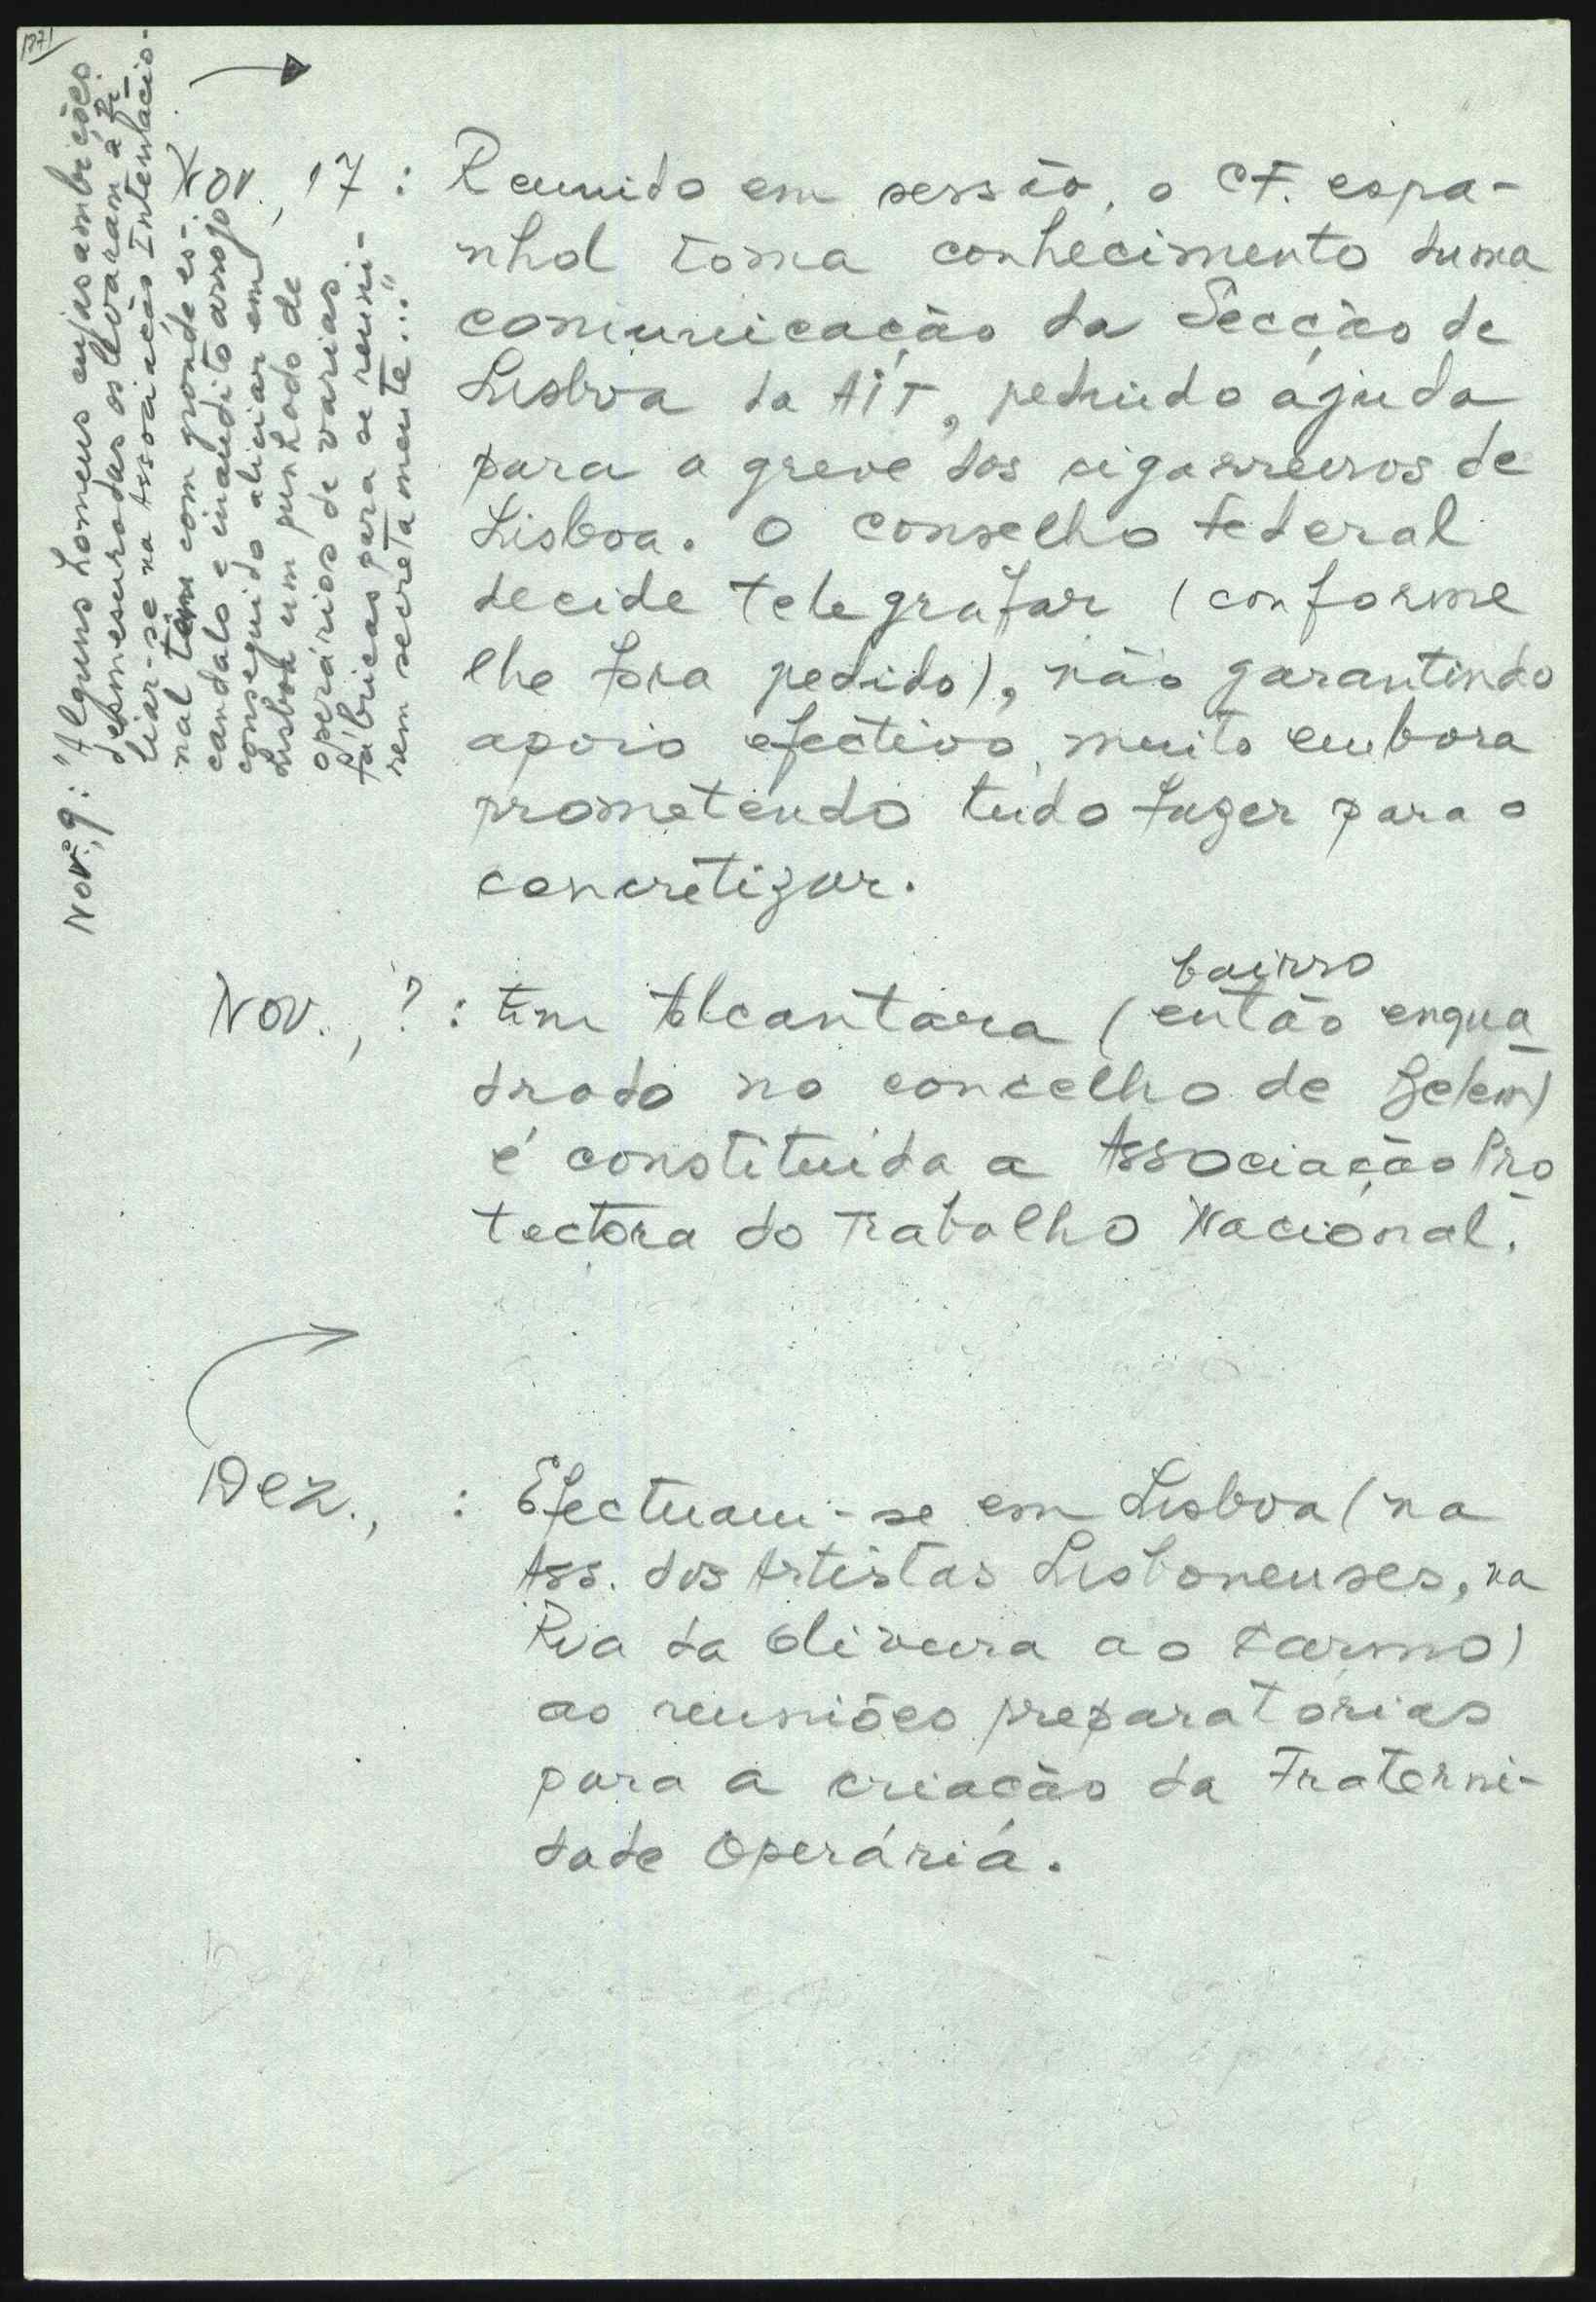 1871
Nov.º, 9: "Alguns homens cujas ambições
desmesuradas os levaram a fi-
liar-se na Associação Internacio-
nal têm com grande es-
candalo e inaudito arrojo
conseguido aliciar em
Lisboa um punhado de
operários de varias
fábricas para se reuni-
rem secretamente..."
Nov., 17: Reunido em sessão, o CF. espa-
nhol toma conhecimento duma
comunicação da Secção de
Lisboa da AIT, pedindo ajuda
para a greve dos cigarreiros de
Lisboa. O Conselho Federal
decide telegrafar (conforme
lhe fora pedido), não garantindo
apoio efectivo, muito embora
prometendo tudo fazer para o
concretizar.
bairro
Nov., ?: Em Alcantara (então enqua
drado no concelho de Belem)
é constituída a Associação Pro
tectora do Trabalho Nacional.
Dez., : Efectuam-se em Lisboa (na
Ass. dos Artistas Lisbonenses, na
Rua da Oliveira ao Carmo)
as reuniões preparatórias
para a criação da Fraterni-
dade Operária.